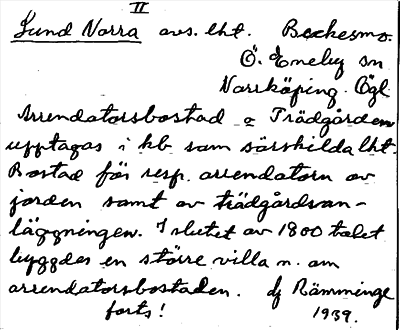 II
Lund Norra avs. lht. Beckesmo.
Ö. Eneby sn
Norrköping. Ögl.
Arrendatorsbostad o Trädgården
upptagas i kb som särskilda lht.
Bostad för resp. arrendatorn av
jorden samt av trädgårdsan-
läggningen. I slutet av 1800 talet
byggdes en större villa n. om
arrendatorsbostaden. df Rämminge
forts! 1939.